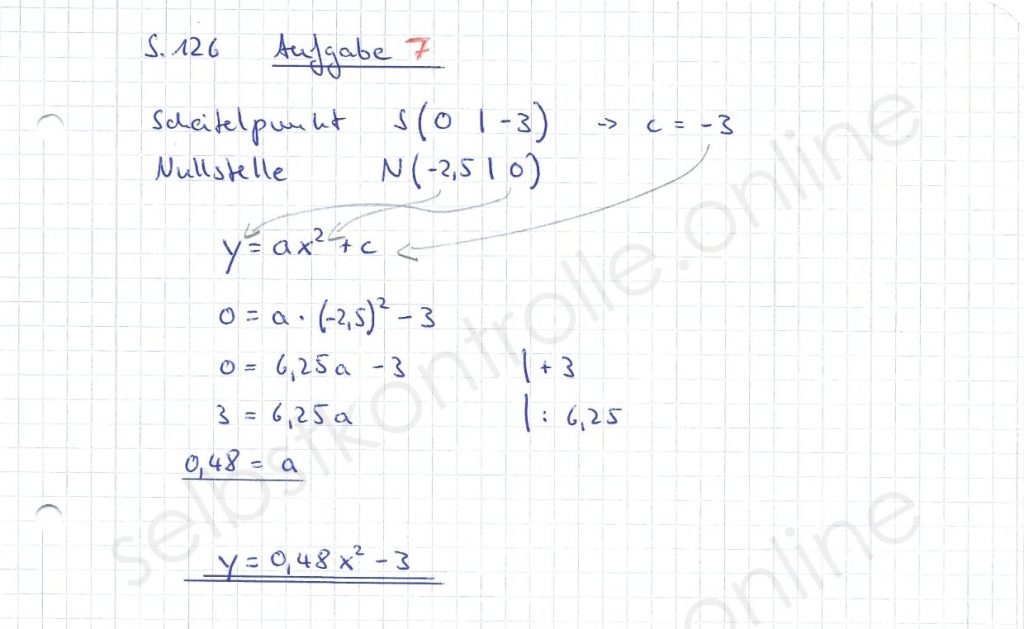 S. 126 Aufgabe 7
Scheitelpunkt S(0 | -3) -> c = -3
Nullstelle N(-2,5 | 0)
y = ax² + c
0 = a · (-2,5)² - 3
0 = 6,25a - 3 | + 3
3 = 6,25a | : 6,25
0,48 = a
y = 0,48x² - 3
selbstkontrolle.online
online